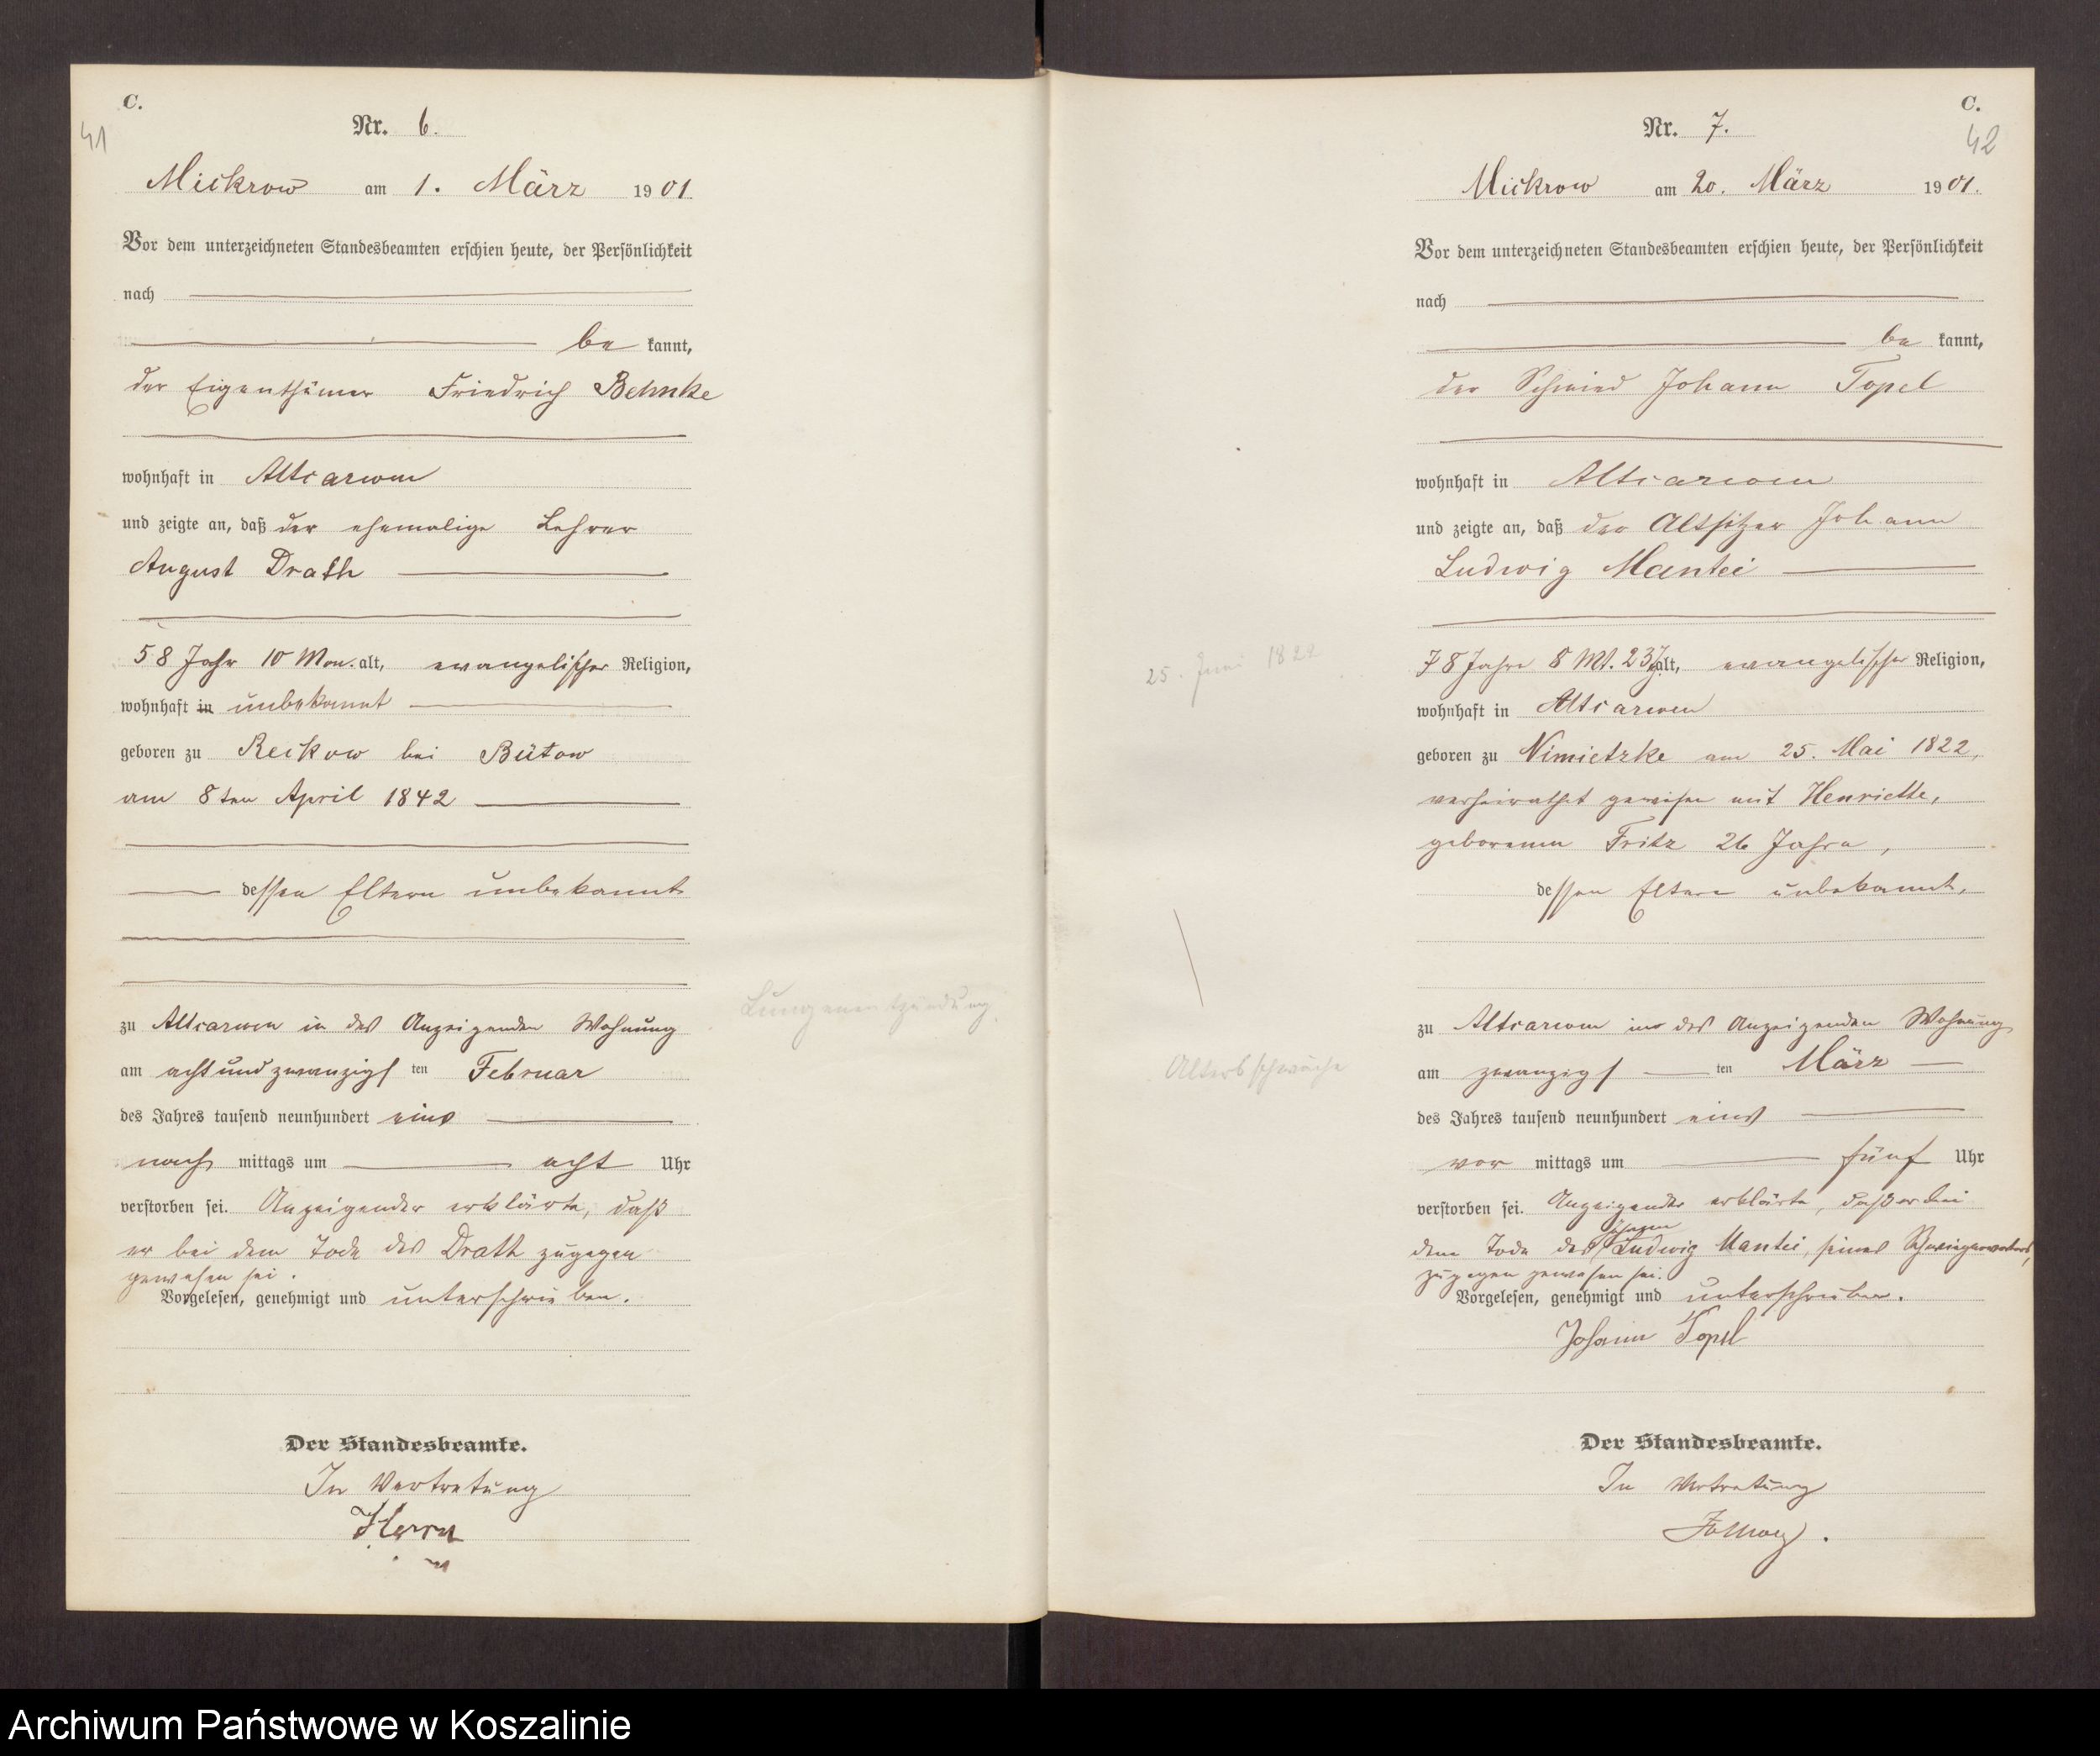 C.
41
Nr. 6.
Mickrow am 1. März 1901.
Vor dem unterzeichneten Standesbeamten erschien heute, der Persönlichkeit
nach
be kannt,
der Eigenthümer Friedrich Behnke
wohnhaft in Altcarwen
und zeigte an, daß der ehemalige Lehrer
August Drath
58 Jahr 10 Mon. alt, evangelischer Religion,
wohnhaft in unbekannt
geboren zu Reckow bei Bütow
am 8ten April 1842
dessen Eltern unbekannt
zu Altcarwen in des Anzeigenden Wohnung
am achtundzwanzigs ten Februar
des Jahres tausend neunhundert eins
nach mittags um acht Uhr
verstorben sei. Anzeigender erklärte, daß
er bei dem Tode des Drath zugegen
gewesen sei.
Vorgelesen, genehmigt und unterschrieben.
Der Standesbeamte.
In Vertretung
Lungenentzündung.
C.
42
Nr. 7.
Mickrow am 20. März 1901.
Vor dem unterzeichneten Standesbeamten erschien heute, der Persönlichkeit
nach
be kannt,
der Schmied Johann Topel
wohnhaft in Altcarwen
und zeigte an, daß der Altsitzer Johann
Ludwig Mantei
78 Jahre 8 Mt. 23 T. alt, evangelischer Religion,
25. Juni 1822
wohnhaft in Altcarwen
geboren zu Nimietzke am 25. Mai 1822,
verheirathet gewesen mit Henriette,
geborenen Fritz 26 Jahre,
dessen Eltern unbekannt,
zu Altcarwen in des Anzeigenden Wohnung
Altersschwäche
am zwanzigs ten März
des Jahres tausend neunhundert eins
vor mittags um fünf Uhr
verstorben sei. Anzeigender erklärte, daß er bei
dem Tode des Johann Ludwig Mantei, seines Schwiegervaters,
zugegen gewesen sei.
Vorgelesen, genehmigt und unterschrieben.
Johann Topel
Der Standesbeamte.
In Vertretung
Archiwum Państwowe w Koszalinie